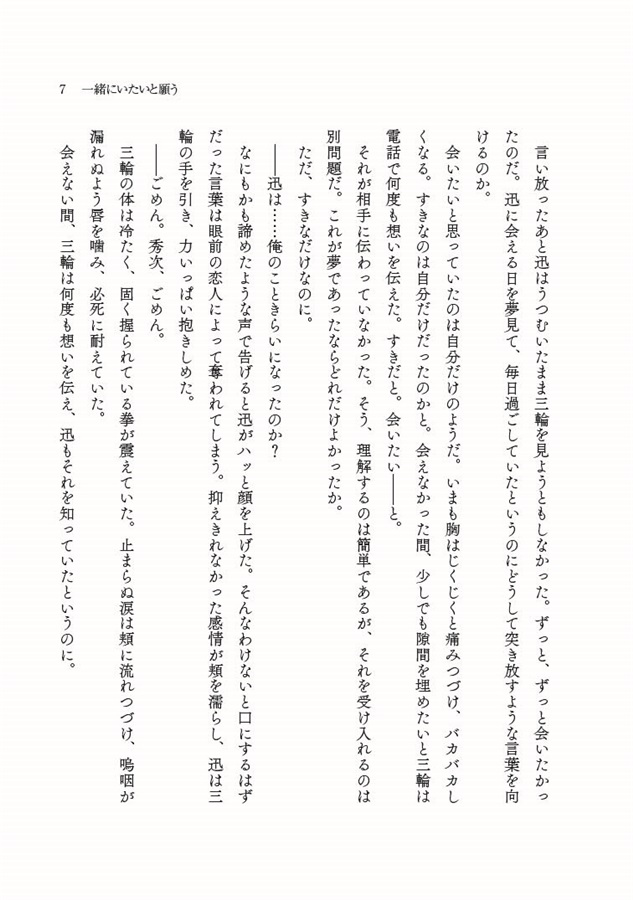 7　一緒にいたいと願う
　言い放ったあと迅はうつむいたまま三輪を見ようともしなかった。ずっと、ずっと会いたかっ
たのだ。迅に会える日を夢見て、毎日過ごしていたというのにどうして突き放すような言葉を向
けるのか。
　会いたいと思っていたのは自分だけのようだ。いまも胸はじくじくと痛みつづけ、バカバカし
くなる。すきなのは自分だけだったのかと。会えなかった間、少しでも隙間を埋めたいと三輪は
電話で何度も想いを伝えた。すきだと。会いたい――と。
　それが相手に伝わっていなかった。そう、理解するのは簡単であるが、それを受け入れるのは
別問題だ。これが夢であったならどれだけよかったか。
　ただ、すきなだけなのに。
　――迅は……俺のこときらいになったのか？
　なにもかも諦めたような声で告げると迅がハッと顔を上げた。そんなわけないと口にするはず
だった言葉は眼前の恋人によって奪われてしまう。抑えきれなかった感情が頬を濡らし、迅は三
輪の手を引き、力いっぱい抱きしめた。
　――ごめん。秀次、ごめん。
　三輪の体は冷たく、固く握られている拳が震えていた。止まらぬ涙は頬に流れつづけ、嗚咽が
漏れぬよう唇を噛み、必死に耐えていた。
　会えない間、三輪は何度も想いを伝え、迅もそれを知っていたというのに。